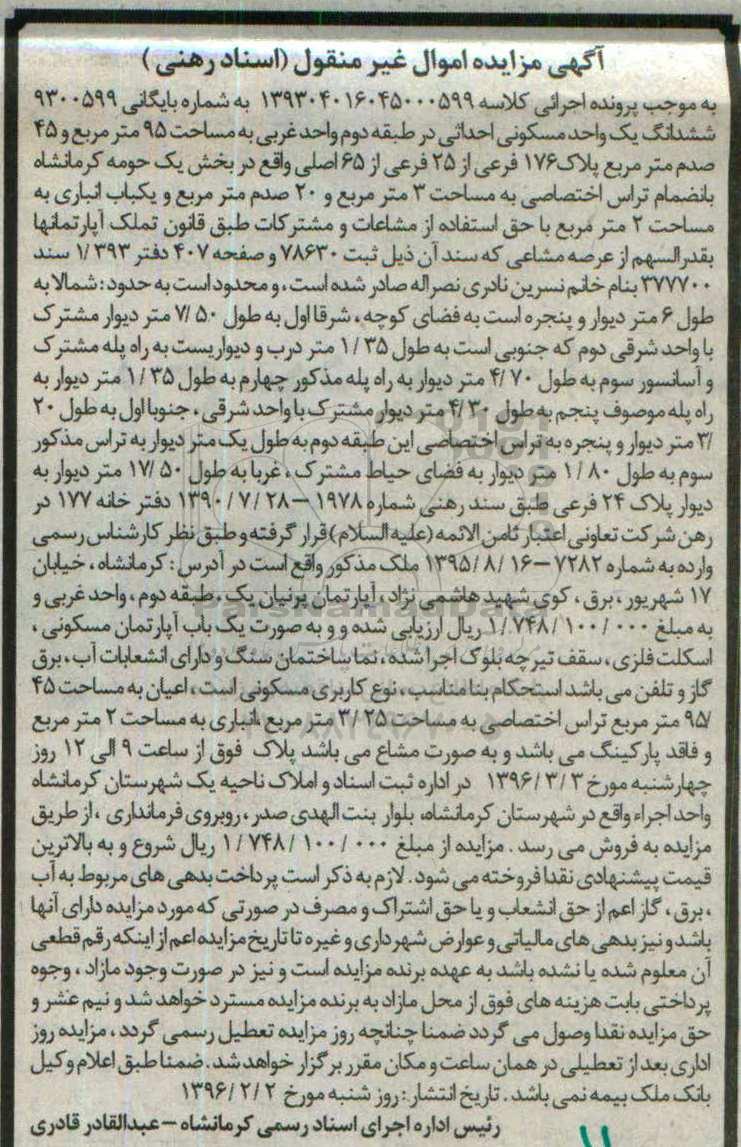 آگهی مزایده اموال غیر منقول (اسناد رهنی)
به موجب پرونده اجرائی کلاسه ۱۳۹۳۰۴۰۱۶۰۴۵۰۰۰۵۹۹ به شماره بایگانی ۹۳۰۰۵۹۹
ششدانگ یک واحد مسکونی احداثی در طبقه دوم واحد غربی به مساحت ۹۵ متر مربع و ۴۵
صدم متر مربع پلاک ۱۷۶ فرعی از ۲۵ فرعی از ۶۵ اصلی واقع در بخش یک حومه کرمانشاه
بانضمام تراس اختصاصی به مساحت ۳ متر مربع و ۲۰ صدم متر مربع و یکباب انباری به
مساحت ۲ متر مربع با حق استفاده از مشاعات و مشترکات طبق قانون تملک آپارتمانها
بقدرالسهم از عرصه مشاعی که سند آن ذیل ثبت ۷۸۶۳۰ و صفحه ۴۰۷ دفتر ۱/۳۹۳ سند
۳۷۷۷۰۰ بنام خانم نسرین نادری نصراله صادر شده است ، و محدود است به حدود : شمالا به
طول ۶ متر دیوار و پنجره است به فضای کوچه ، شرقا اول به طول ۷/۵۰ متر دیوار مشترک
با واحد شرقی دوم که جنوبی است به طول ۱/۳۵ متر درب و دیواریست به راه پله مشترک
و آسانسور سوم به طول ۴/۷۰ متر دیوار به راه پله مذکور چهارم به طول ۱/۳۵ متر دیوار به
راه پله موصوف پنجم به طول ۴/۳۰ متر دیوار مشترک با واحد شرقی ، جنوبا اول به طول ۲۰
/۳ متر دیوار و پنجره به تراس اختصاصی این طبقه دوم به طول یک متر دیوار به تراس مذکور
سوم به طول ۱/۸۰ متر دیوار به فضای حیاط مشترک ، غربا به طول ۱۷/۵۰ متر دیوار به
دیوار پلاک ۲۴ فرعی طبق سند رهنی شماره ۱۹۷۸ – ۱۳۹۰/۷/۲۸ دفتر خانه ۱۷۷ در
رهن شرکت تعاونی اعتبار ثامن الائمه (علیه السلام) قرار گرفته و طبق نظر کارشناس رسمی
وارده به شماره ۷۲۸۲ – ۱۳۹۵/۸/۱۶ ملک مذکور واقع است در آدرس : کرمانشاه ، خیابان
۱۷ شهریور ، برق ، کوی شهید هاشمی نژاد ، آپارتمان پرنیان یک ، طبقه دوم ، واحد غربی و
به مبلغ ۱/۷۴۸/۱۰۰/۰۰۰ ریال ارزیابی شده و و به صورت یک باب آپارتمان مسکونی ،
اسکلت فلزی ، سقف تیرچه بلوک اجرا شده ، نما ساختمان سنگ و دارای انشعابات آب ، برق
گاز و تلفن می باشد استحکام بنا مناسب ، نوع کاربری مسکونی است ، اعیان به مساحت ۴۵
/۹۵ متر مربع تراس اختصاصی به مساحت ۳/۲۵ متر مربع ،انباری به مساحت ۲ متر مربع
و فاقد پارکینگ می باشد و به صورت مشاع می باشد پلاک فوق از ساعت ۹ الی ۱۲ روز
چهارشنبه مورخ ۱۳۹۶/۳/۳ در اداره ثبت اسناد و املاک ناحیه یک شهرستان کرمانشاه
واحد اجراء واقع در شهرستان کرمانشاه، بلوار بنت الهدی صدر ، روبروی فرمانداری ، از طریق
مزایده به فروش می رسد . مزایده از مبلغ ۱/۷۴۸/۱۰۰/۰۰۰ ریال شروع و به بالاترین
قیمت پیشنهادی نقدا فروخته می شود . لازم به ذکر است پرداخت بدهی های مربوط به آب
، برق ، گاز اعم از حق انشعاب و یا حق اشتراک و مصرف در صورتی که مورد مزایده دارای آنها
باشد و نیز بدهی های مالیاتی و عوارض شهرداری و غیره تا تاریخ مزایده اعم از اینکه رقم قطعی
آن معلوم شده یا نشده باشد به عهده برنده مزایده است و نیز در صورت وجود مازاد ، وجوه
پرداختی بابت هزینه های فوق از محل مازاد به برنده مزایده مسترد خواهد شد و نیم عشر و
حق مزایده نقدا وصول می گردد ضمنا چنانچه روز مزایده تعطیل رسمی گردد ، مزایده روز
اداری بعد از تعطیلی در همان ساعت و مکان مقرر برگزار خواهد شد . ضمنا طبق اعلام وکیل
بانک ملک بیمه نمی باشد . تاریخ انتشار : روز شنبه مورخ ۱۳۹۶/۲/۲
رئیس اداره اجرای اسناد رسمی کرمانشاه – عبدالقادر قادری
۱۱